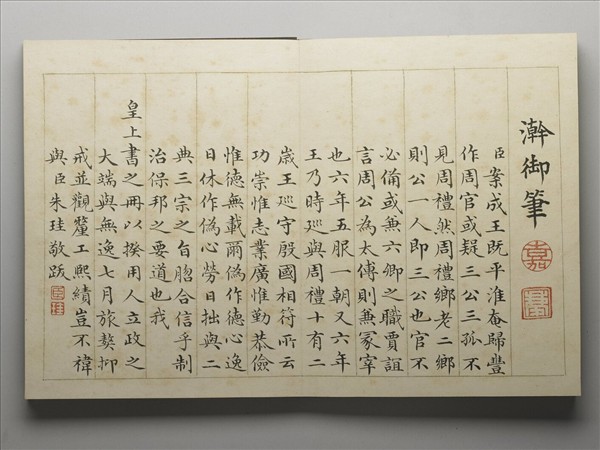 澣御筆
嘉
臣案成王既平淮奄歸豐
作周官或疑三公三孤不
見周禮然周禮鄉老二鄉
則公一人即三公也官不
必備或兼六卿之職賈誼
言周公為太傅則兼冢宰
也六年五服一朝又六年
王乃時巡與周禮十有二
歲王巡守殷國相符所云
功崇惟志業廣惟勤恭儉
惟德無載爾偽作德心逸
日休作偽心勞日拙與二
典三宗之旨脗合信乎制
治保邦之要道也我
皇上書之冊以揆用人立政之
大端與無逸七月旅獒抑
戒並觀釐工熙績豈不禕
與臣朱珪敬跋
臣珪